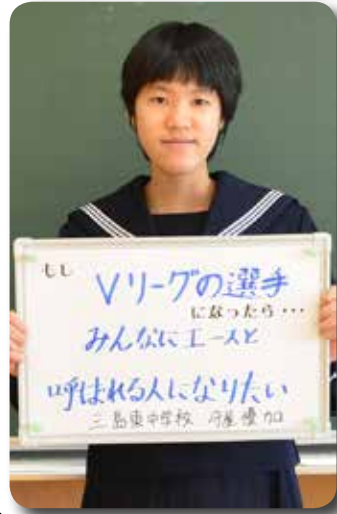 もし
Vリーグの選手
になったら…
みんなにエースと
呼ばれる人になりたい
三島東中学校 守屋優加